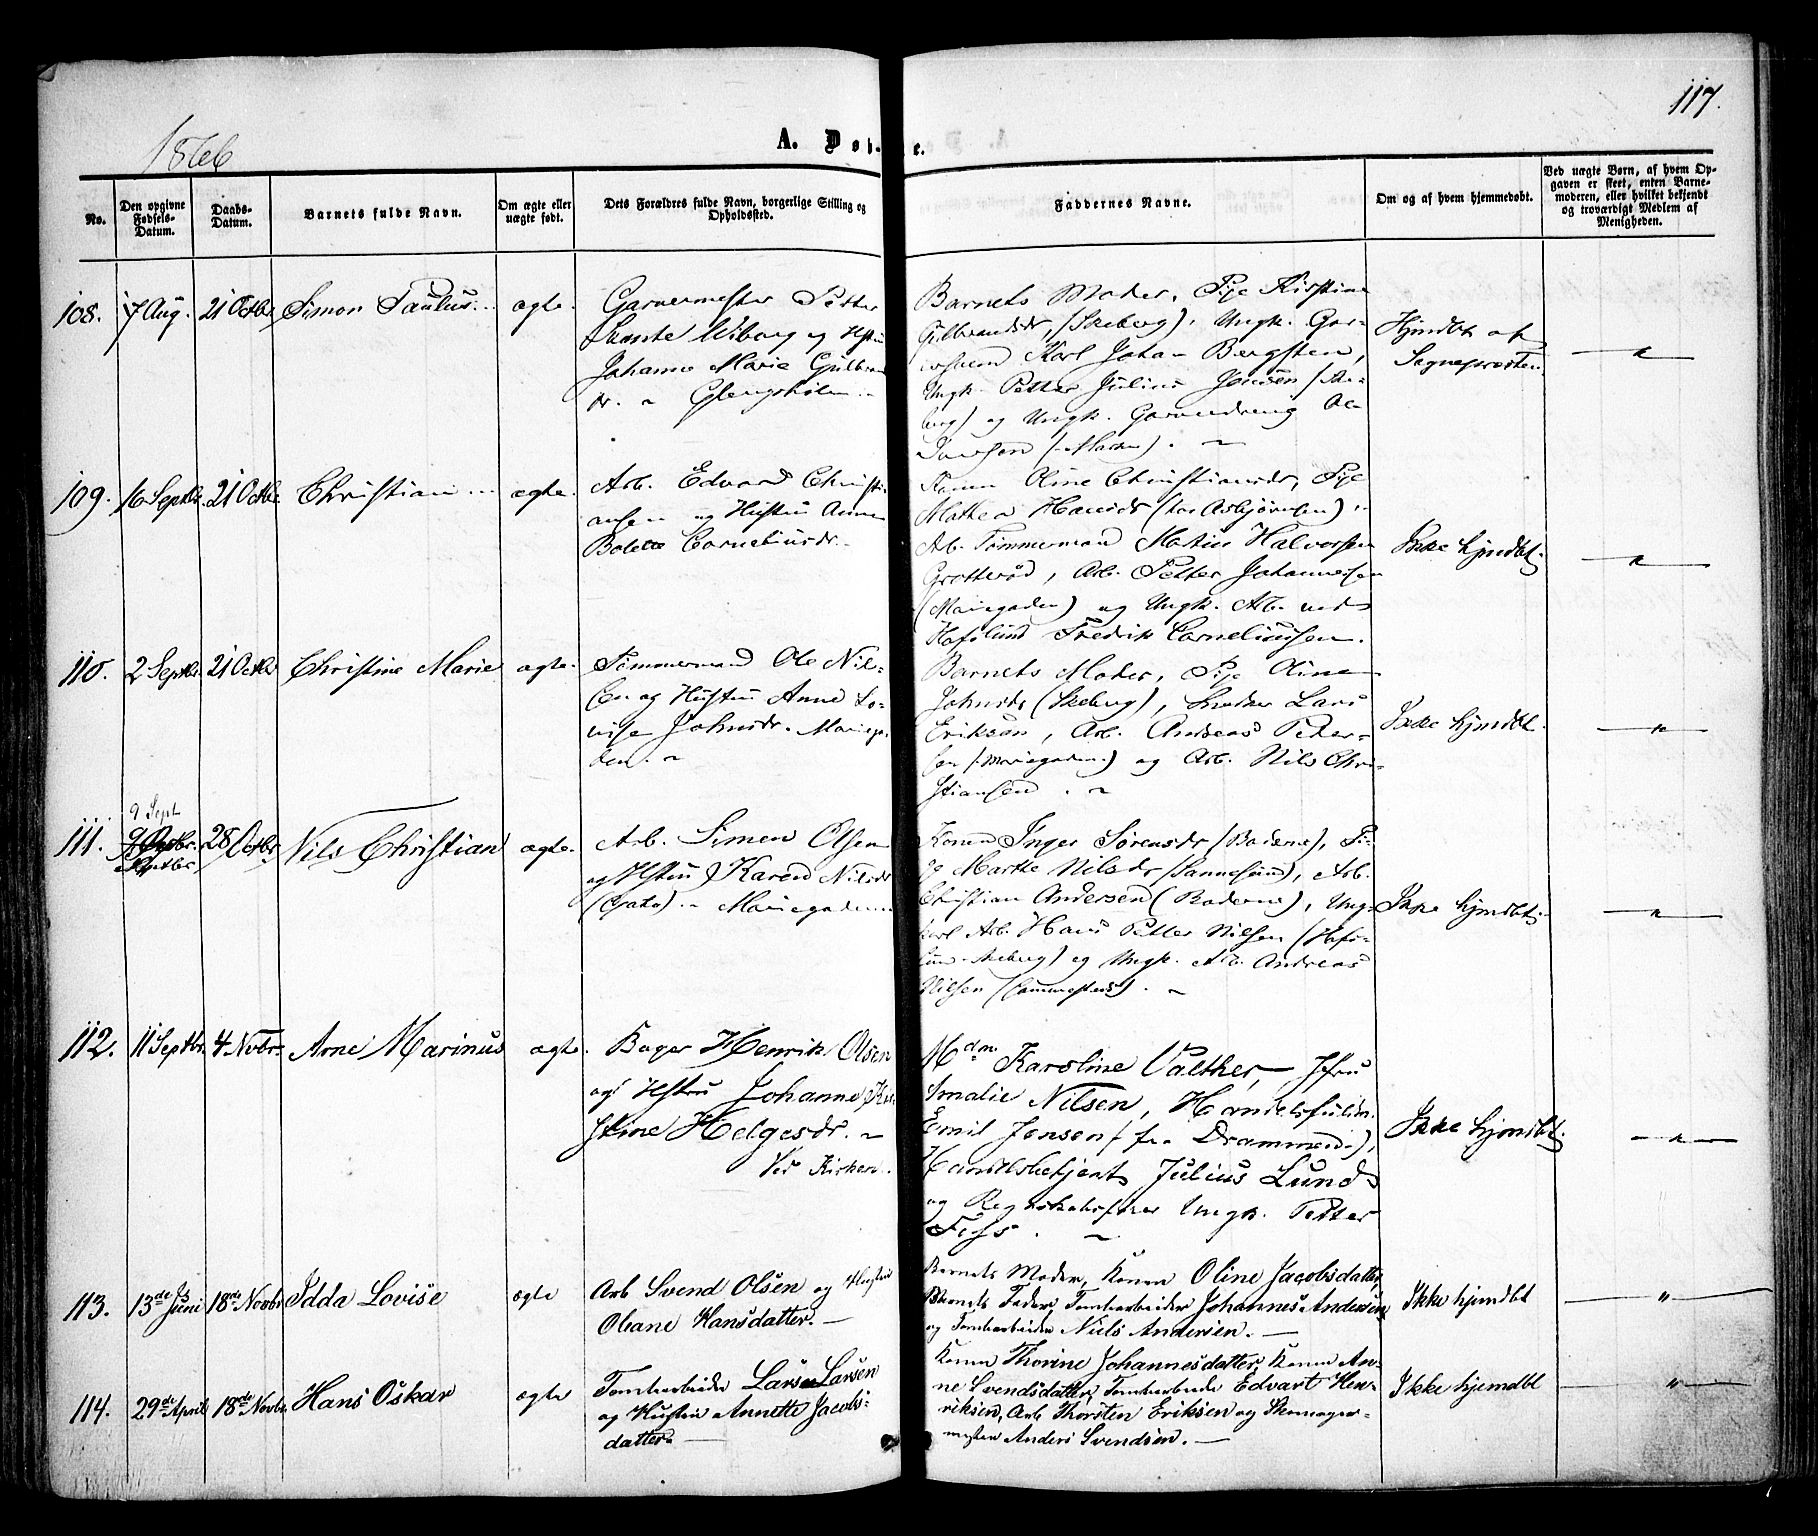 117.
1866
A. Døbte.
No.
Den opgivne Fødsels-Datum.
Daabs-Datum.
Barnets fulde Navn.
Om ægte eller uægte født.
Dets Forældres fulde Navn, borgerlige Stilling og Opholdssted.
Faddernes Navne.
Om og af hvem hjemmedøbt.
Ved uægte Børn, af hvem Opgaven er skeet, enten Barnemoderen, eller hvilket bekjendt og troværdigt Medlem af Menigheden.
108. 7 Aug. 21 Octbr. Simon Paulus ægte.
Garvermester Petter
Wiborg og Hstru
Johanne Marie Gulbrands-
dr.
Barnets Moder, Pige Kirstine
Gulbrandsdr, (Skeberg), Ungk.
Karl Johan Bergsten,
Ungk. Petter Julius Jensen
og Ungk.
Hjmdbt af
Sognepresten
109. 16 Septbr. 21 Octbr Christian ægte.
Arb. Edvard Christi-
ansen og Hustru Anne
Bolette Corneliusdr.
Konen Oline Christiansdr, Pige
Mathea Hansdr (hos Asbjørnsen),
Arb. Tømmermand Martin Halvorsen
Grottérød, Arb. Petter Johannesen
(Mariegaden) og Ungk. Arb. ved
Hafslund Fredrik Corneliussen.
Ikke hjmdbt.
110. 2 Septbr. 21 Octbr Christine Marie ægte.
Tømmermand Ole Nil-
sen og Hustru Anne Lo-
vise Johnsdr. Mariega-
den.
Barnets Moder, Pige Oline
Johnsdr (Skeberg), Snedker Lars
Eriksen, Arb. Andreas Peter-
sen (Mariegaden) og Arb. Nils Chri-
stiansen.
Ikke hjmdbt.
9 Sept
111. Septbr. 28 Octbr Nils Christian ægte.
Arb. Simen Olsen
og Hstru Karen Nilsdr
Mariegaden
Konen Inger Sørensdr (Baderne), Pi-
ge Marthe Nilsdr (Sannesund), Arb.
Christian Andersen (Baderne), Ung-
karl Arb. Hans Petter Nilsen (Hafs-
lund Skeberg) og Ungk. Arb. Andreas
Nilsen
Ikke hjmdbt.
112. 11 Septbr. 4 Novbr. Arne Marinus ægte.
Bager Henrik Olsen
og Hstru Johanne Kir-
stine Helgesdr.
Ved Kirken.
Mdm Karoline Valther, Jfru
Amalie Nilsen, Handelsfuldm.
Emil Jensen (fra Drammen),
Handelsbetjent Julius Lund
og Regnskabsfører Ungk. Petter
Foss.
Ikke hjmdbt.
113. 13de Juni 18de Novbr Idda Lovise ægte
Arb Svend Olsen og Hustru
Oleane Hansdatter.
Barnets Moder, Konen Oline Jacobsdatter,
Barnets Fader, Tomtarbeider Johannes Andersen
og Tomtarbeider Niels Andersen.
Ikke hjemdbt
114. 29de April 18de Novbr. Hans Oskar ægte
Tomtarbeider Lars Larsen
og Hustru Annette Jacobs-
datter
Konen Thorine Johannesdatter, Konen An-
ne Svendsdatter, Tomtarbeider Edvart Hen-
riksen, Arb Thorsten Eriksen og Skomager-
mester Anders Svendsen.
Ikke hjemdbt